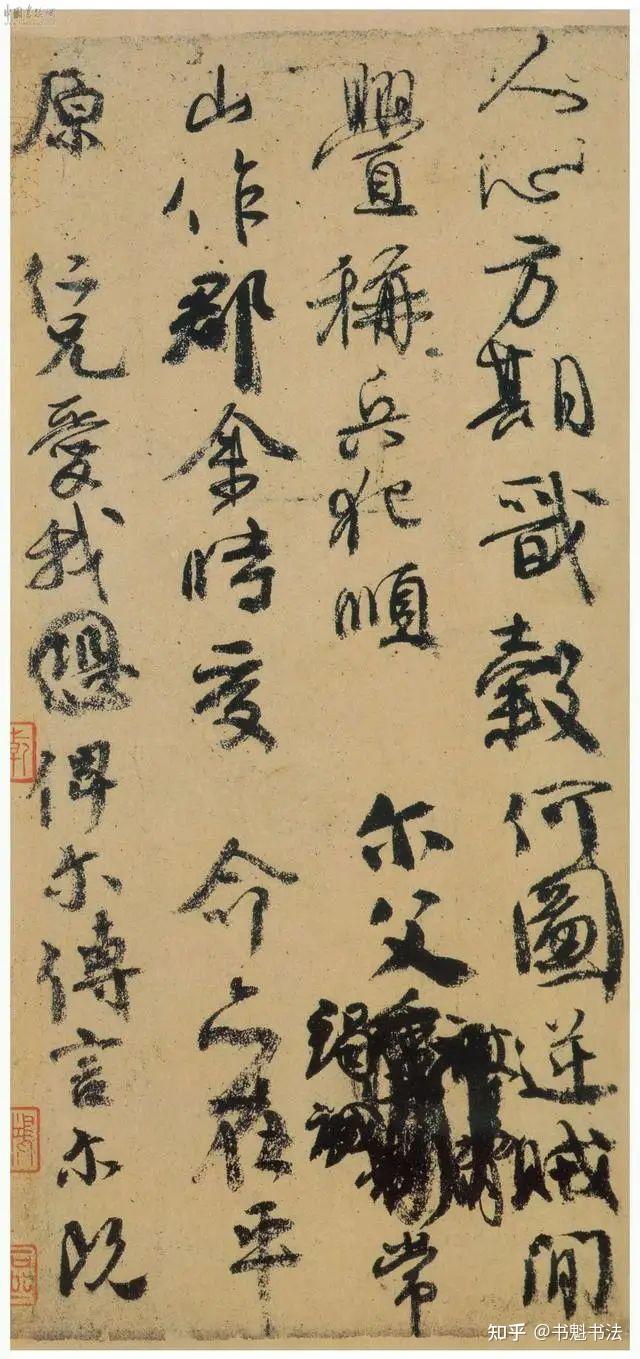 人心方期戬穀何圖逆賊間
舋稱兵犯順尒父竭誠常
山作郡余時受命亦在平
原仁兄愛我俾尒傳言尒既
中國書法網
知乎 @书魁书法